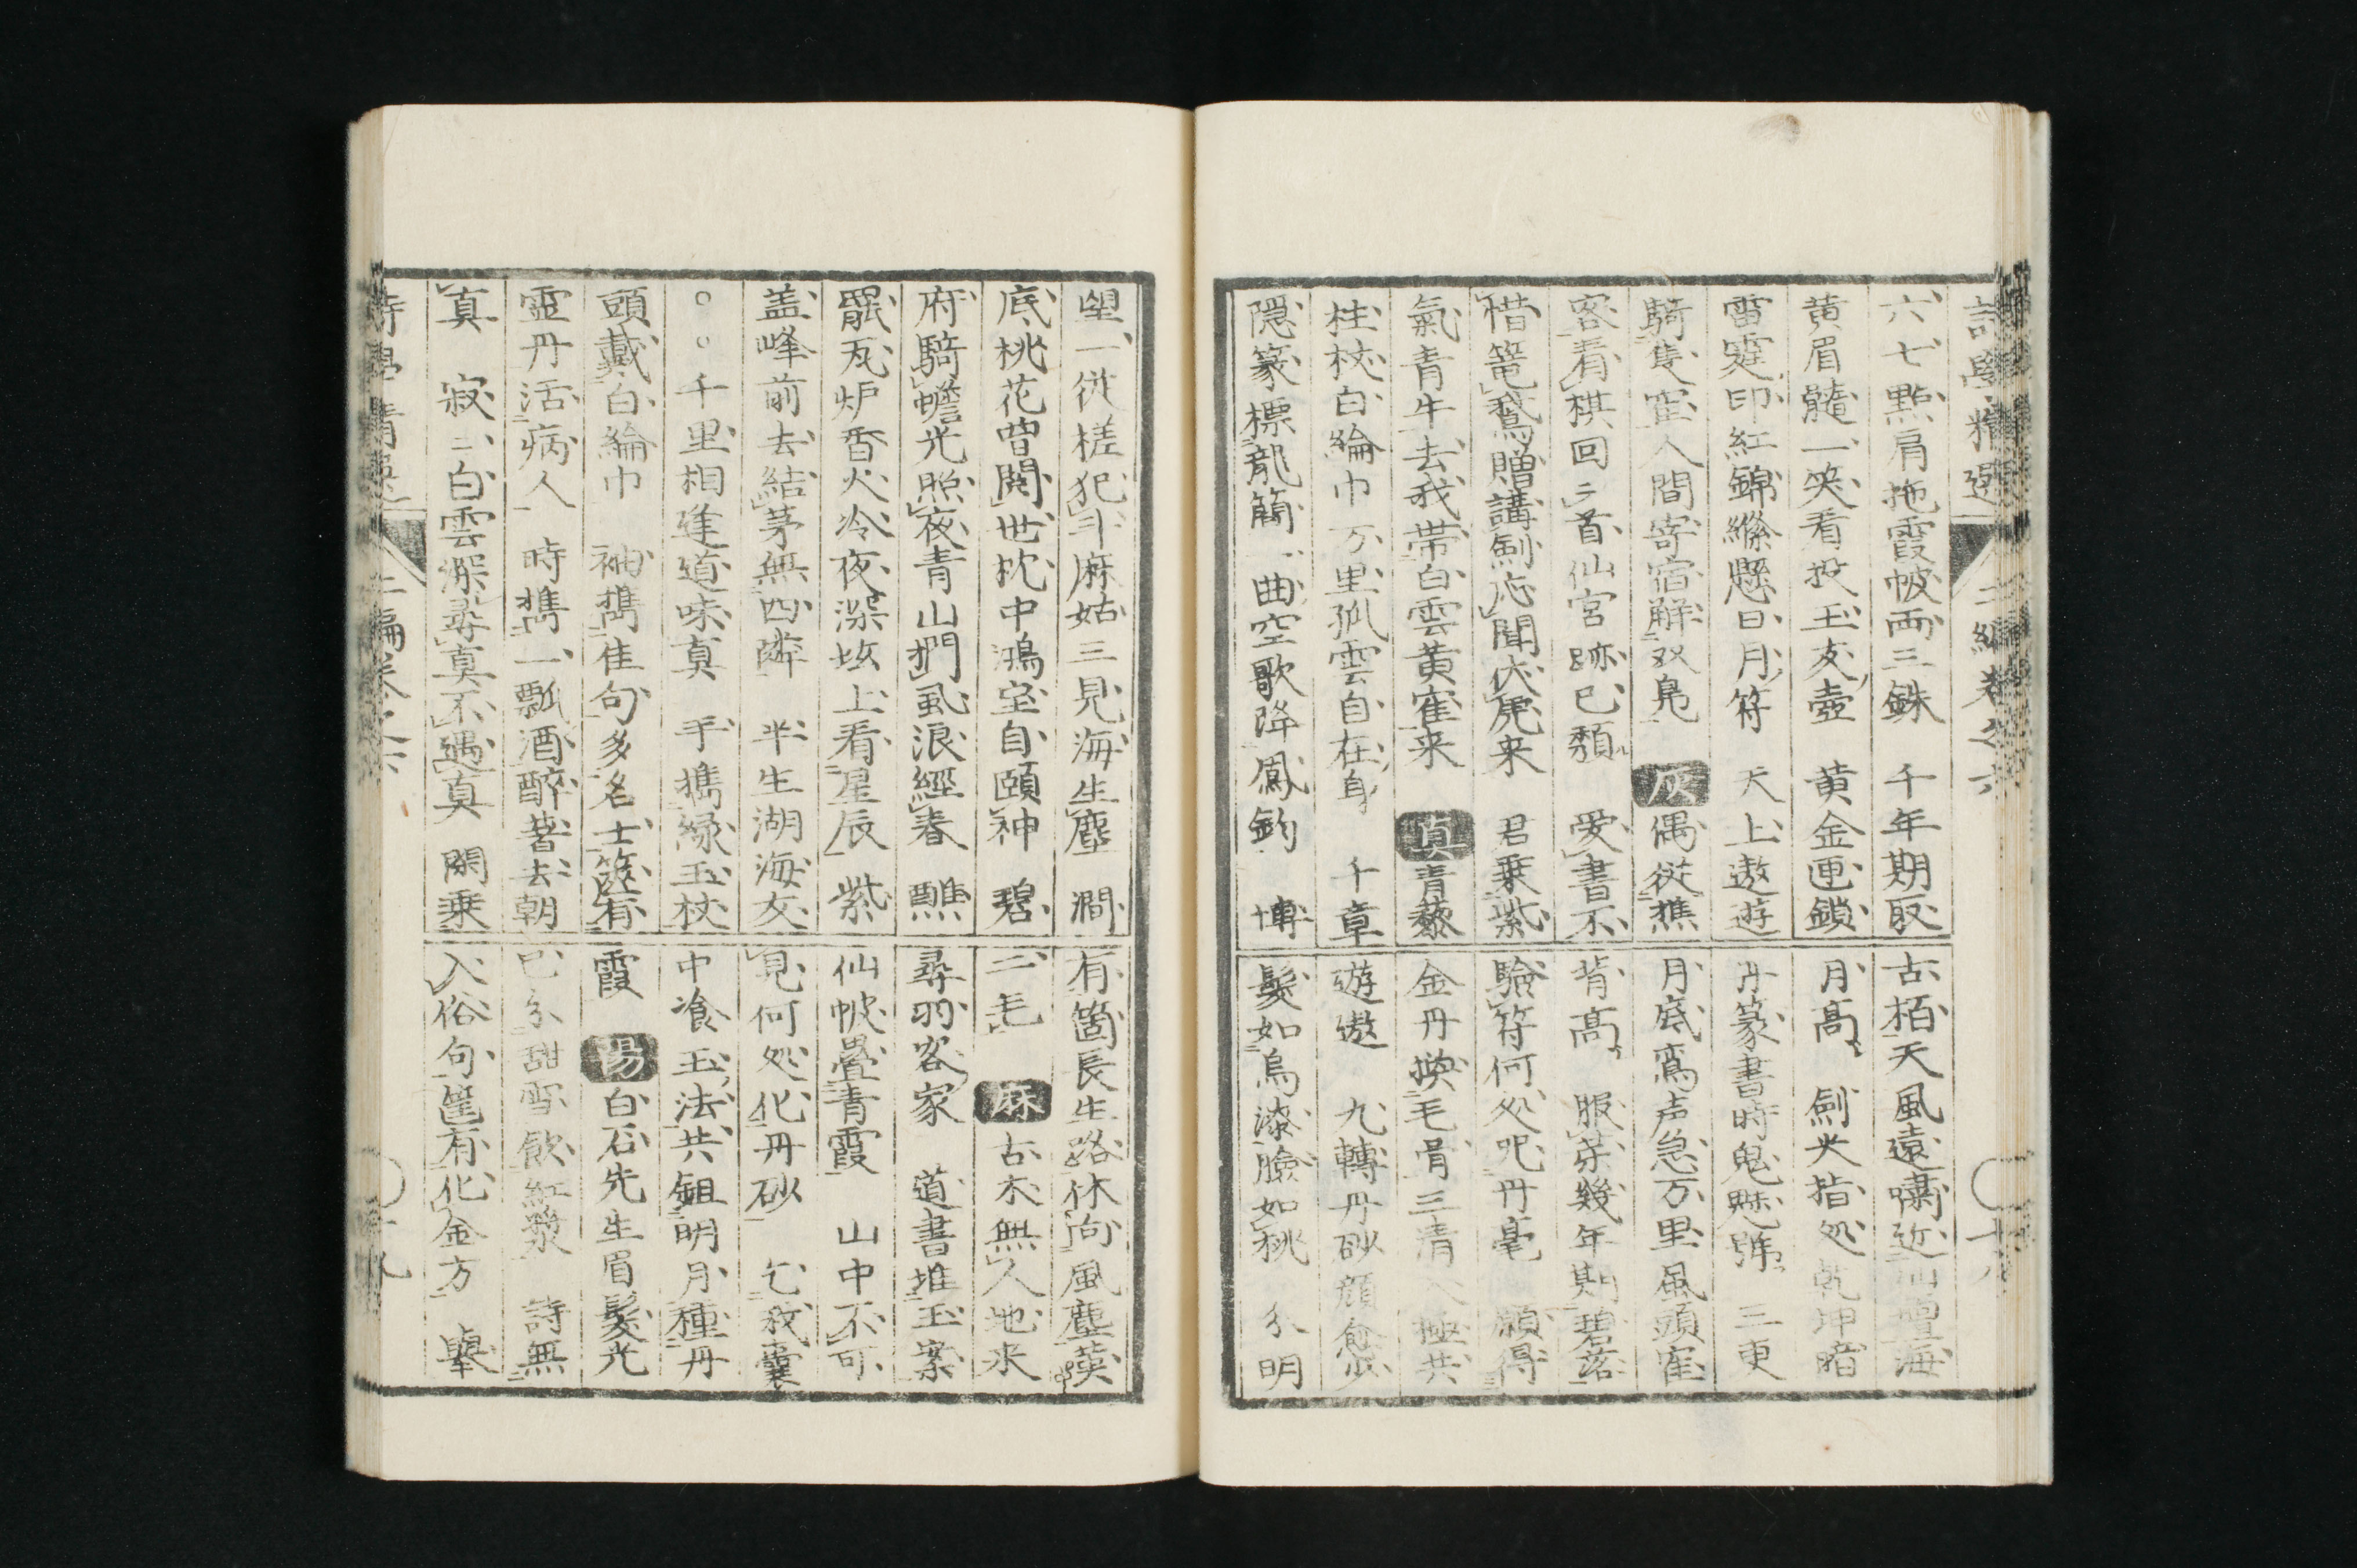 六七點肩拖霞帔兩三銖　千年期取
黃眉髓一笑看投玉女壺　黃金匣鎖
雷霆印紅錦縧懸日月符　天上遨遊
騎隻　人間寄宿解双鳧　灰　偶從樵
客看棋回二首仙宮跡已頽　愛書不
惜篭鵞贈講劍応聞伏虎来　君乗紫
氣青牛去我帯白雲黄寉来　真　青藜
柱杖白綸巾万里孤雲自在身　千章
隱篆標龍簡一曲空歌降鳳鈞　博
古栢天風遠嘯近仙壇海
月高　劍尖指処乾坤暗
丹篆書時鬼魅号　三更
月底鸞声急万里風頭寉
背高　服芽幾年期碧落
驗符何処呪丹毫　願得
金丹換毛骨三清八極共
遊遨　九轉丹砂顔愈少
髮如烏漆臉如桃　分明
望一従槎犯斗麻姑三見海生塵　澗
底桃花曾閱世枕中鴻宝自頤神　碧
府騎蟾光照夜青山捫虱浪經春　醮
罷瓦炉香火冷夜深坛上看星辰　紫
盖峰前去結茅無四隣　半生湖海友
○○千里相逢道味真　手携緑玉杖
頭戴白綸巾　袖携佳句多名士篋有
靈丹活病人　時携一瓢酒醉著去朝
真　寂二白雲深尋真不遇真　閑乗
有箇長生路休向風塵
二毛　麻　古木無人地来
尋羽客家　道書堆玉案
仙帔疊青霞　山中不可
見何処化丹砂　乞我囊
中飡玉法共鉏明月種丹
霞　陽　白石先生眉髮光
已分甜雪飲紅漿　詩無
入俗句篋有化金方　舉
詩學精選　二編巻之六